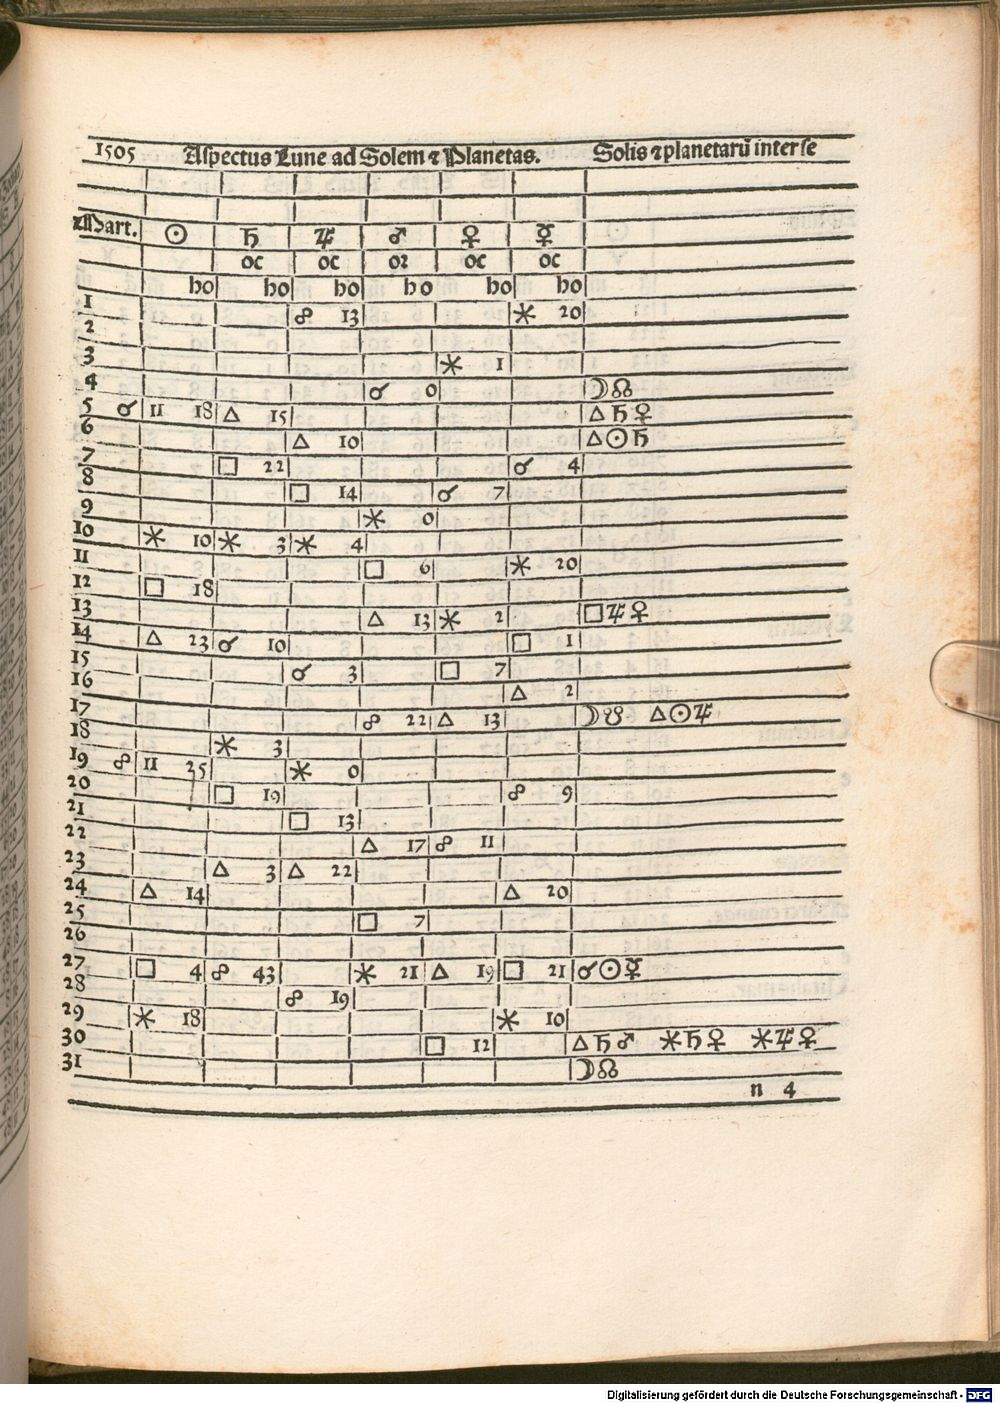 1505 Aspectus Lune ad Solem ⁊ Planetas. Solis ⁊ planetarū inter se
Mart. ☉ ♄ ♃ ♂ ♀ ☿
oc oc or oc oc
ho ho ho ho ho ho
1 ☍ 13 ⚹ 20
2
3 ⚹ 1
4 ☌ 0 ☽☊
5 ☌ 11 18 △ 15 △♄♀
6 △ 10 △☉♄
7 □ 22 ☌ 4
8 □ 14 ☌ 7
9 ⚹ 0
10 ⚹ 10 ⚹ 3 ⚹ 4
11 □ 6 ⚹ 20
12 □ 18
13 △ 13 ⚹ 2 □♃♀
14 △ 23 ☌ 10 □ 1
15 ☌ 3 □ 7
16 △ 2
17 ☍ 22 △ 13 ☽☋ △☉♃
18 ⚹ 3
19 ☍ 11 25 ⚹ 0
20 □ 19 ☍ 9
21 □ 13
22 △ 17 ☍ 11
23 △ 3 △ 22
24 △ 14 △ 20
25 □ 7
26
27 □ 4 ☍ 43 ⚹ 21 △ 19 □ 21 ☌☉☿
28 ☍ 19
29 ⚹ 18 ⚹ 10
30 □ 12 △♄♂ ⚹♄♀ ⚹♃♀
31 ☽☊
n 4
Digitalisierung gefördert durch die Deutsche Forschungsgemeinschaft - DFG